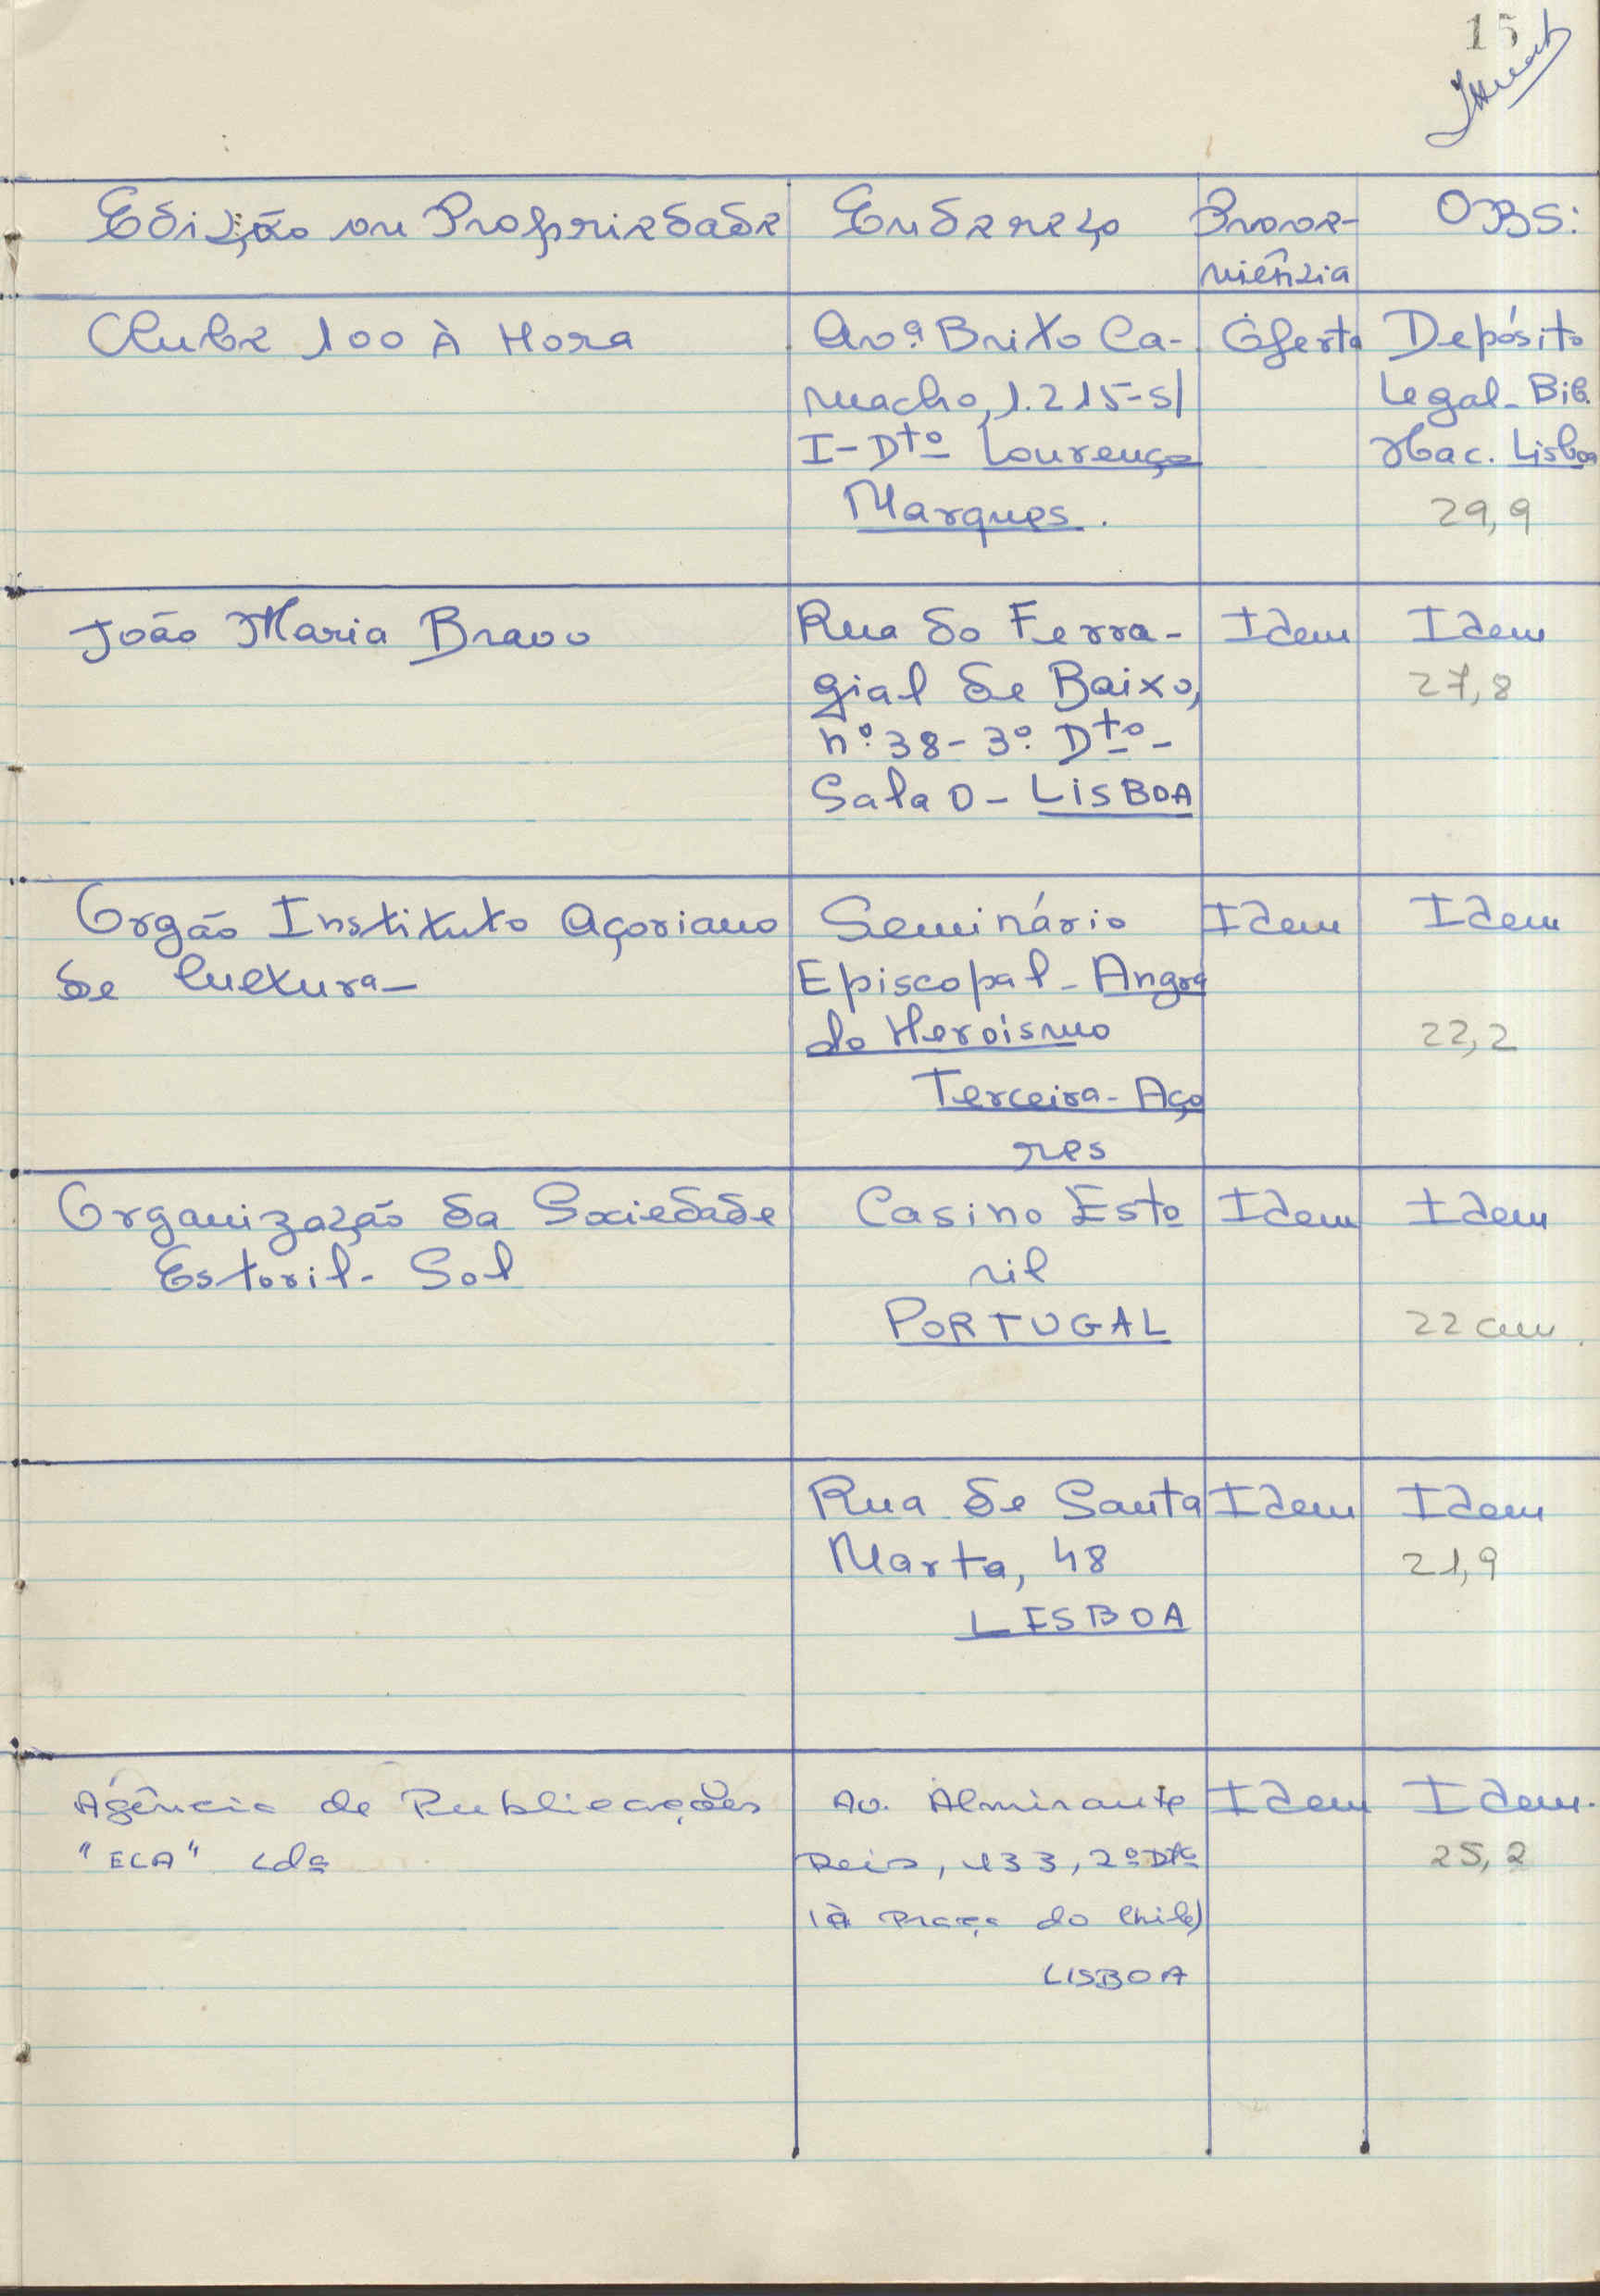 15
Edição ou Propriedade Endereço Prove- OBS:
niência
Clube 100 À Hora Avª Brito Ca- Oferta Depósito
macho, 1.215-s/ Legal-Bib.
I-Dtº Lourenço Nac. Lisboa
Marques. 29,9
João Maria Bravo Rua do Ferra- Idem Idem
gial de Baixo, 27,8
nº 38-3º. Dtº-
Sala D-LISBOA
Orgão Instituto Açoriano Seminário Idem Idem
de Cultura- Episcopal-Angra
do Heroísmo 22,2
Terceira-Aço
res
Organização da Sociedade Casino Esto Idem Idem
Estoril-Sol ril
PORTUGAL 22 cm.
Rua de Santa Idem Idem
Marta, 48 21,9
LISBOA
Agência de Publicações Av. Almirante Idem Idem.
"ECA" Ldª Reis, 133, 2º Dtº 25,2
(à Praça do Chile)
LISBOA